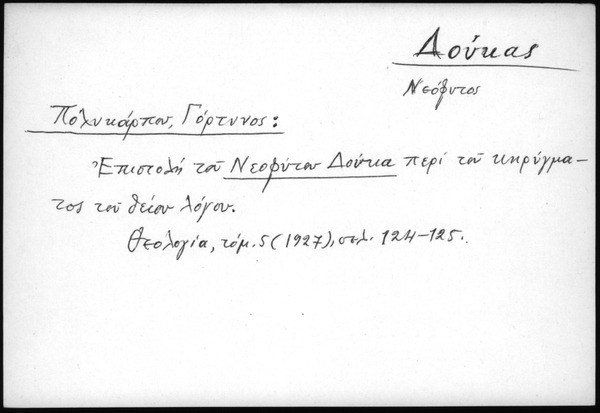 Δούκας
Νεόφυτος
Πολυκάρπου, Γόρτυνος:
Ἐπιστολή τοῦ Νεοφύτου Δούκα περί τοῦ κηρύγμα-
τος τοῦ θείου λόγου.
Θεολογία, τόμ. 5 (1927), σελ. 124-125.